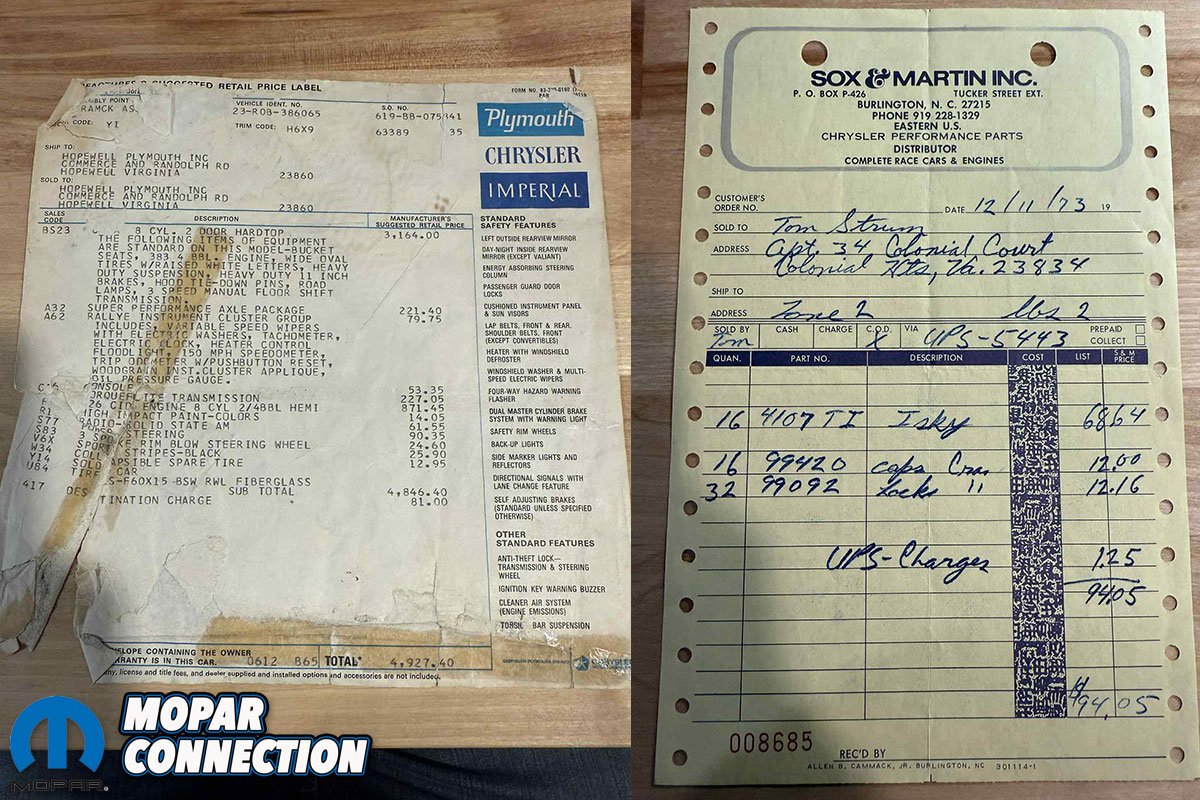 SUGGESTED RETAIL PRICE LABEL
FORM NO.
VEHICLE IDENT. NO.
23-R0B-386065
S.O. NO.
619-BB-075341
CODE: Y1
TRIM CODE: H6X9
63389 35
SHIP TO:
HOPEWELL PLYMOUTH INC
COMMERCE AND RANDOLPH RD
HOPEWELL VIRGINIA 23860
SOLD TO:
HOPEWELL PLYMOUTH INC
COMMERCE AND RANDOLPH RD
HOPEWELL VIRGINIA 23860
SALES CODE
DESCRIPTION
MANUFACTURER'S SUGGESTED RETAIL PRICE
BS23 8 CYL. 2 DOOR HARDTOP 3,164.00
THE FOLLOWING ITEMS OF EQUIPMENT
ARE STANDARD ON THIS MODEL-BUCKET
SEATS, 383 4 BBL. ENGINE, WIDE OVAL
TIRES W/RAISED WHITE LETTERS, HEAVY
DUTY SUSPENSION, HEAVY DUTY 11 INCH
BRAKES, HOOD TIE-DOWN PINS, ROAD
LAMPS, 3 SPEED MANUAL FLOOR SHIFT
TRANSMISSION.
A32 SUPER PERFORMANCE AXLE PACKAGE 221.40
A62 RALLYE INSTRUMENT CLUSTER GROUP 79.75
INCLUDES, VARIABLE SPEED WIPERS
WITH ELECTRIC WASHERS, TACHOMETER,
ELECTRIC CLOCK, HEATER CONTROL
FLOODLIGHT, 150 MPH SPEEDOMETER,
TRIP ODOMETER W/PUSHBUTTON RESET,
WOODGRAIN INST.CLUSTER APPLIQUE,
OIL PRESSURE GAUGE.
CONSOLE 53.35
TRANSMISSION 227.05
26 CID ENGINE 8 CYL 2/4BBL HEMI 871.45
R1 HIGH IMPACT PAINT-COLORS 14.05
S77 RADIO-SOLID STATE AM 61.55
S83 STEERING 90.35
V6X RIM BLOW STEERING WHEEL 24.60
W34 STRIPES-BLACK 25.90
Y14 APSIBLE SPARE TIRE 12.95
U84 SOLD CAR
TIRES-F60X15-BSW RWL FIBERGLASS
SUB TOTAL 4,846.40
417 DESTINATION CHARGE 81.00
ENVELOPE CONTAINING THE OWNER
WARRANTY IS IN THIS CAR. 0612 865 TOTAL* 4,927.40
any, license and title fees, and dealer supplied and installed options and accessories are not included.
CHRYSLER-PLYMOUTH DIVISION
Plymouth
CHRYSLER
IMPERIAL
STANDARD
SAFETY FEATURES
LEFT OUTSIDE REARVIEW MIRROR
DAY-NIGHT INSIDE REARVIEW
MIRROR (EXCEPT VALIANT)
ENERGY ABSORBING STEERING
COLUMN
PASSENGER GUARD DOOR
LOCKS
CUSHIONED INSTRUMENT PANEL
& SUN VISORS
LAP BELTS, FRONT & REAR,
SHOULDER BELTS, FRONT
(EXCEPT CONVERTIBLES)
HEATER WITH WINDSHIELD
DEFROSTER
WINDSHIELD WASHER & MULTI-
SPEED ELECTRIC WIPERS
FOUR-WAY HAZARD WARNING
FLASHER
DUAL MASTER CYLINDER BRAKE
SYSTEM WITH WARNING LIGHT
SAFETY RIM WHEELS
BACK-UP LIGHTS
SIDE MARKER LIGHTS AND
REFLECTORS
DIRECTIONAL SIGNALS WITH
LANE CHANGE FEATURE
SELF ADJUSTING BRAKES
(STANDARD UNLESS SPECIFIED
OTHERWISE)
OTHER
STANDARD FEATURES
ANTI-THEFT LOCK—
TRANSMISSION & STEERING
WHEEL
IGNITION KEY WARNING BUZZER
CLEANER AIR SYSTEM
(ENGINE EMISSIONS)
TORSION BAR SUSPENSION
MOPAR
CONNECTION
MOPAR
SOX & MARTIN INC.
P. O. BOX P-426 TUCKER STREET EXT.
BURLINGTON, N. C. 27215
PHONE 919 228-1329
EASTERN U.S.
CHRYSLER PERFORMANCE PARTS
DISTRIBUTOR
COMPLETE RACE CARS & ENGINES
CUSTOMER'S
ORDER NO. DATE 12/11/73 19
SOLD TO Tom Strum
ADDRESS Apt. 34 Colonial Court
Colonial Hts, Va. 23834
SHIP TO
ADDRESS Zone 2 lbs 2
SOLD BY CASH CHARGE C.O.D. VIA PREPAID
Tom X UPS-5443 COLLECT
QUAN. PART NO. DESCRIPTION COST LIST S & M PRICE
16 4107 TI Isky 68.64
16 99420 caps Cran 12.00
32 99092 Locks " 12.16
UPS-Charges 1.25
94.05
$94.05
008685
REC'D BY
ALLEN B. CAMMACK, JR. BURLINGTON, NC 301114-1